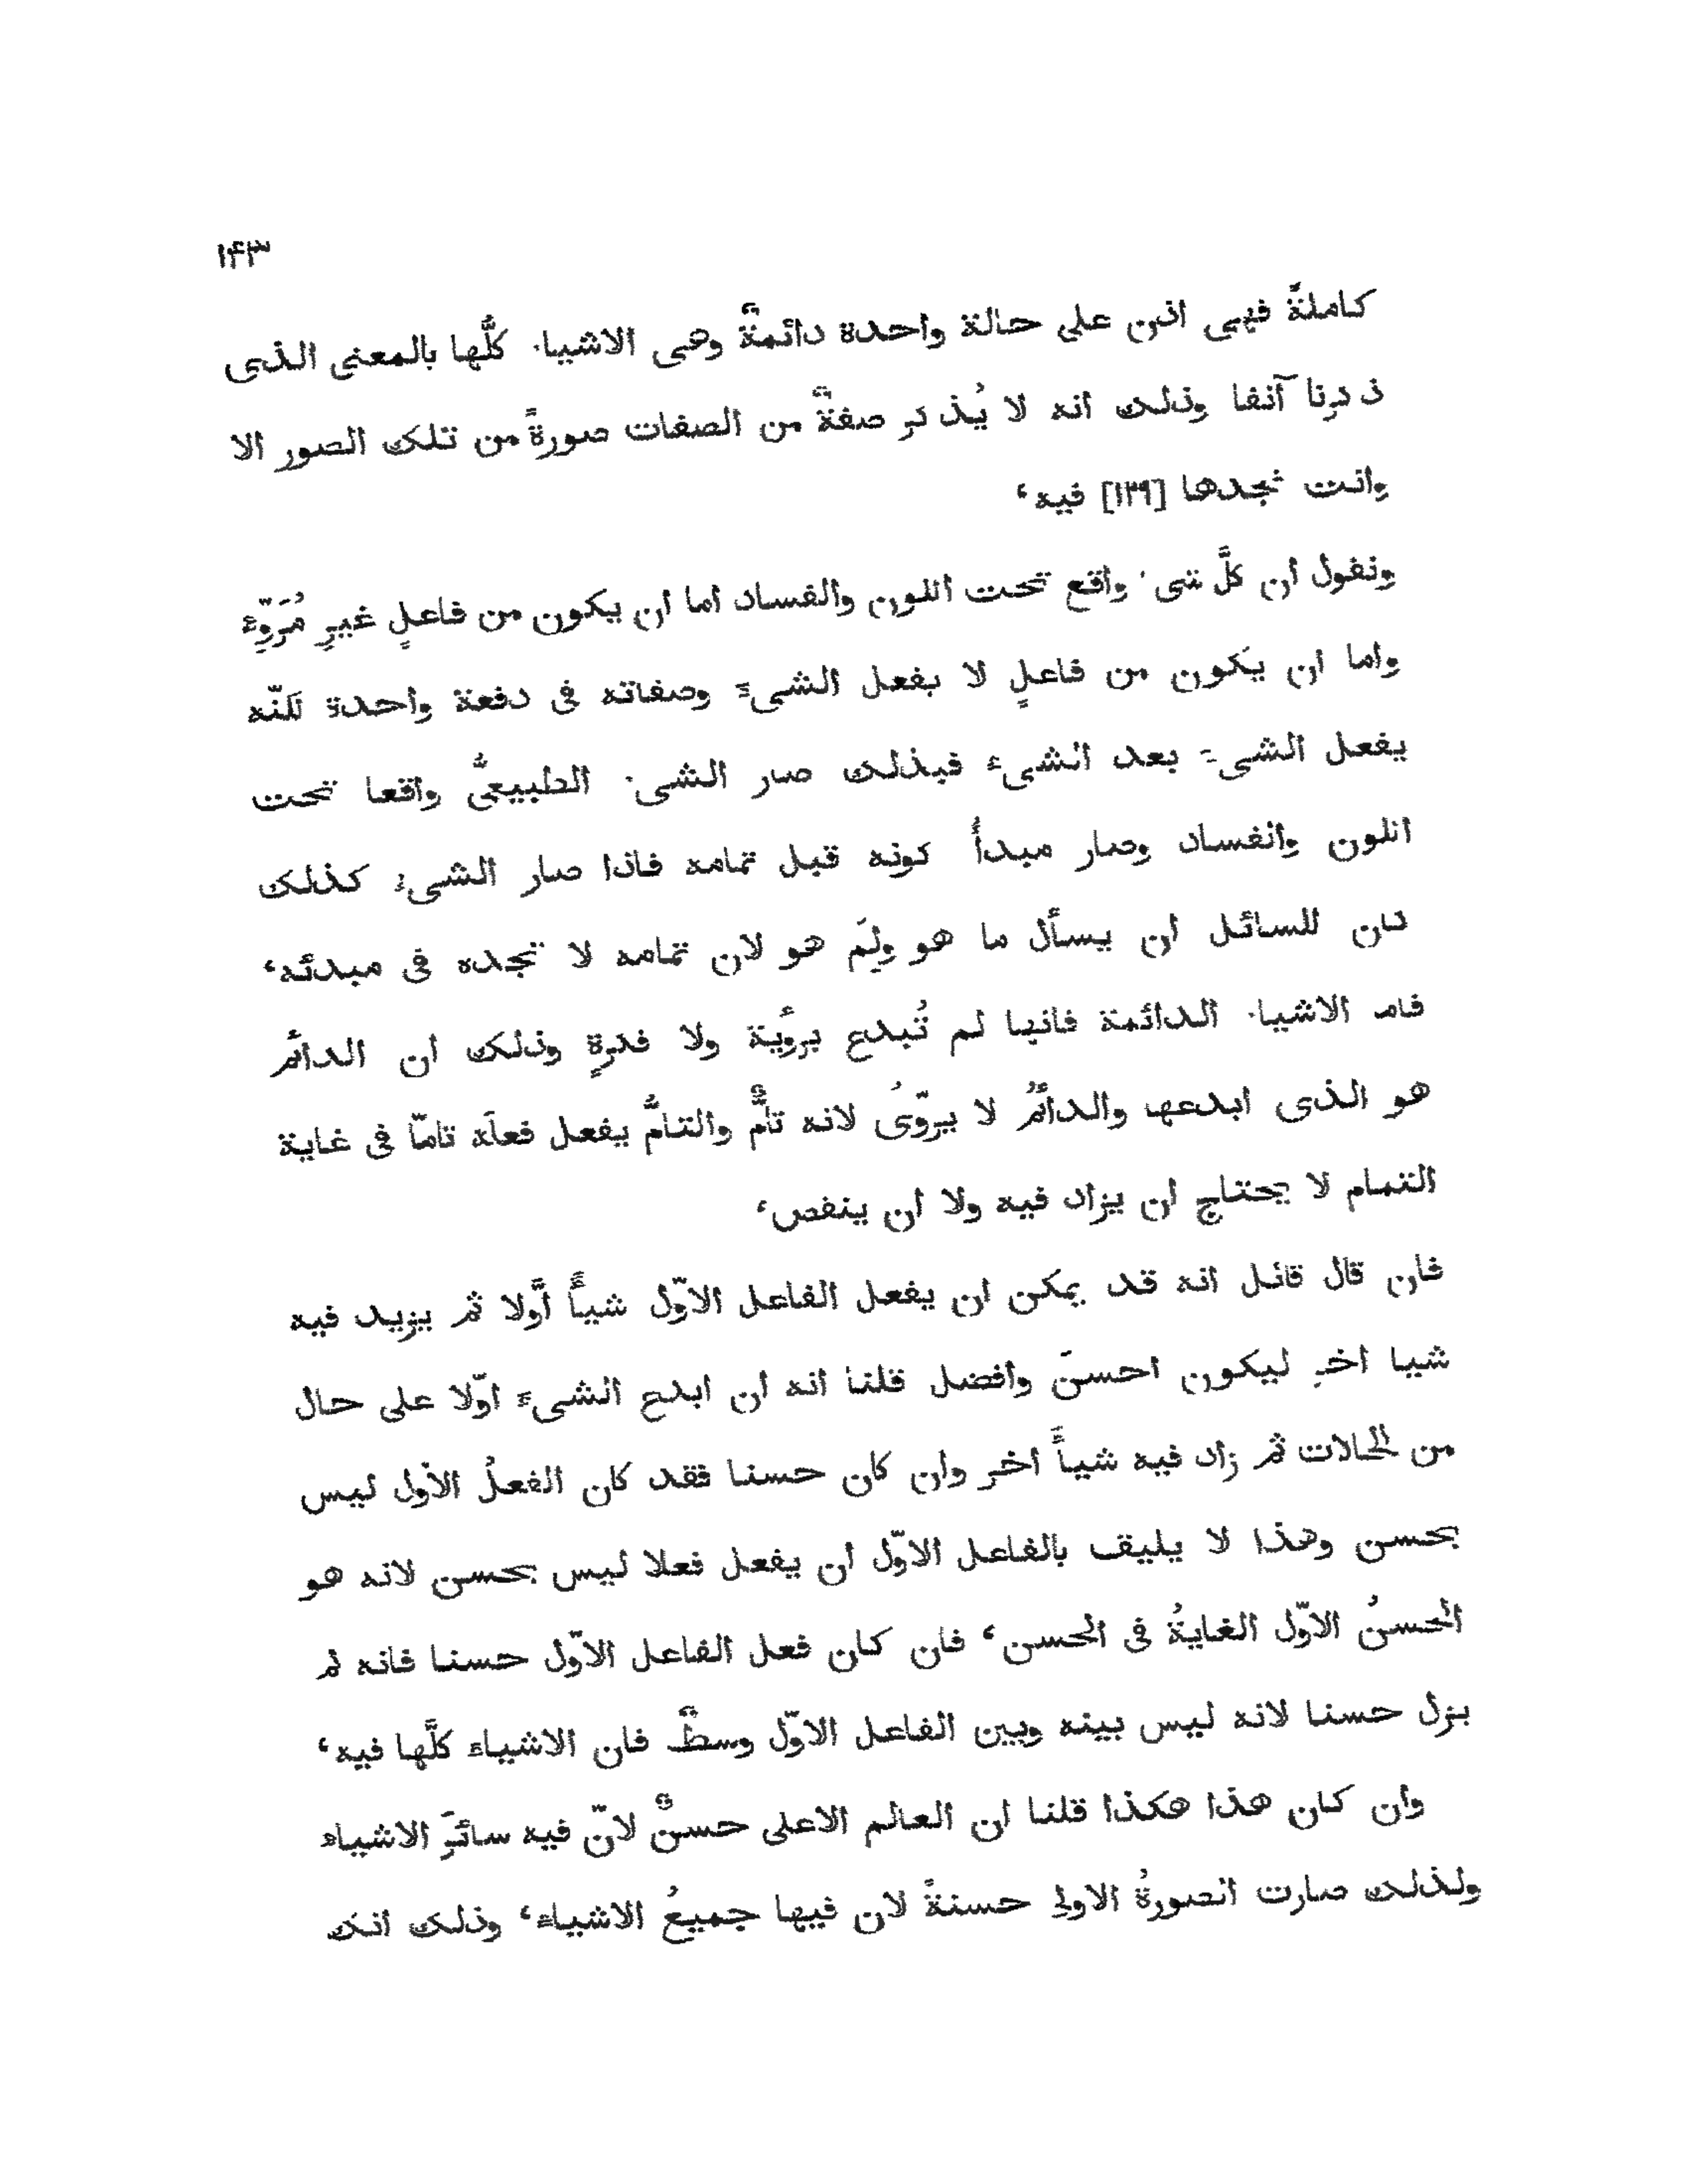 ۱۴۳
كاملةً فهى اذن على حالة واحدة دائمةٌ وهى الاشياء كلُّها بالمعنى الذى
ذكرنا آنفا وذلك انه لا يُذكر صفةٌ من الصفات صورةً من تلك الصور الا
وانت تجدها [۱۳۹] فيه،
ونقول ان كلَّ شىء واقع تحت الكون والفساد اما ان يكون من فاعلٍ غيرِ مُرَوِّء
واما ان يكون من فاعلٍ لا يفعل الشىءَ وصفاته فى دفعة واحدة لكنّه
يفعل الشىءَ بعد الشىء فبذلك صار الشىء الطبيعىُّ واقعا تحت
الكون والفساد وصار مبدأُ كونه قبل تمامه فاذا صار الشىء كذلك
كان للسائل ان يسأل ما هو ولِمَ هو لان تمامه لا تجده فى مبدئه،
فاما الاشياء الدائمة فانها لم تُبدع برؤية ولا فكرةٍ وذلك ان الدائم
هو الذى ابدعها والدائمُ لا يروّىُ لانه تامٌّ والتامُّ يفعل فعلَه تامّا فى غاية
التمام لا يحتاج ان يزاد فيه ولا ان ينقص،
فان قال قائل انه قد يمكن ان يفعل الفاعل الاوّل شيأً اوّلا ثم يزيد فيه
شيا اخر ليكون احسنَ وافضل قلنا انه ان ابدع الشىءَ اوّلا على حال
من الحالات ثم زاد فيه شيأً اخر وان كان حسنا فقد كان الفعلُ الاوّل ليس
بحسن وهذا لا يليق بالفاعل الاوّل ان يفعل فعلا ليس بحسن لانه هو
الحسنُ الاوّل الغايةُ فى الحسن، فان كان فعل الفاعل الاوّل حسنا فانه لم
يزل حسنا لانه ليس بينه وبين الفاعل الاوّل وسطٌ فان الاشياء كلَّها فيه،
وان كان هذا هكذا قلنا ان العالم الاعلى حسنٌ لانّ فيه سائرَ الاشياء
ولذلك صارت الصورةُ الاولى حسنةً لان فيها جميعُ الاشياء، وذلك انك